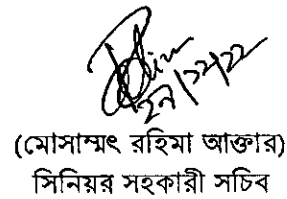 ২৭/১২/২২
(মোসাম্মৎ রহিমা আক্তার)
সিনিয়র সহকারী সচিব